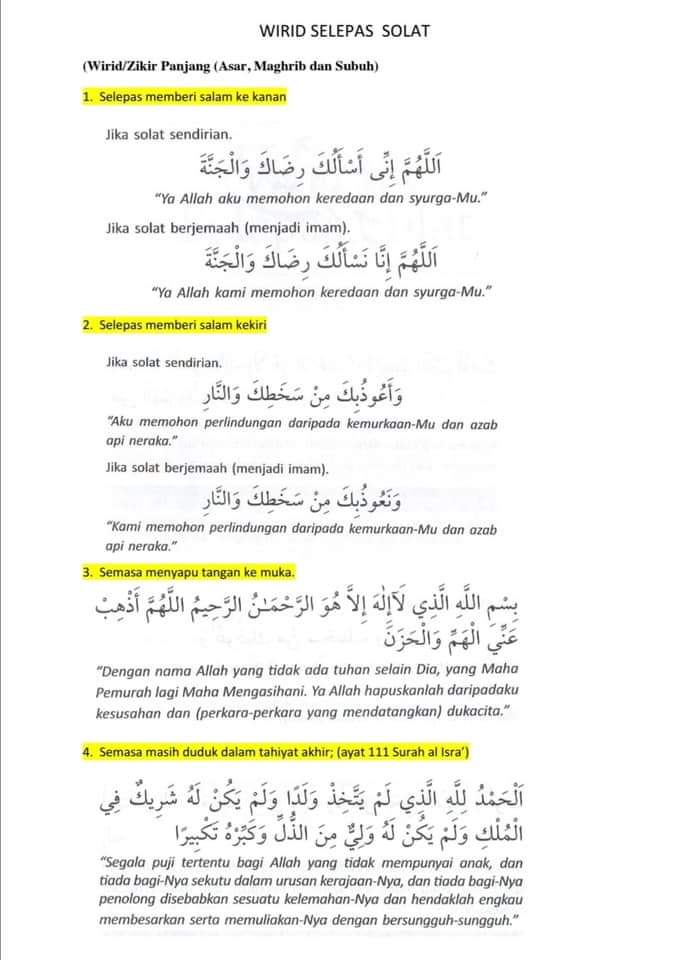 WIRID SELEPAS SOLAT
(Wirid/Zikir Panjang (Asar, Maghrib dan Subuh)
1. Selepas memberi salam ke kanan
Jika solat sendirian.
اَللَّهُمَّ إِنِّى أَسْأَلُكَ رِضَاكَ وَالْجَنَّةَ
“Ya Allah aku memohon keredaan dan syurga-Mu.”
Jika solat berjemaah (menjadi imam).
اَللَّهُمَّ إِنَّا نَسْأَلُكَ رِضَاكَ وَالْجَنَّةَ
“Ya Allah kami memohon keredaan dan syurga-Mu.”
2. Selepas memberi salam kekiri
Jika solat sendirian.
وَأَعُوذُبِكَ مِنْ سَخَطِكَ وَالنَّارِ
“Aku memohon perlindungan daripada kemurkaan-Mu dan azab
api neraka.”
Jika solat berjemaah (menjadi imam).
وَنَعُوذُبِكَ مِنْ سَخَطِكَ وَالنَّارِ
“Kami memohon perlindungan daripada kemurkaan-Mu dan azab
api neraka.”
3. Semasa menyapu tangan ke muka.
بِسْمِ اللَّهِ الَّذِي لَآإِلٰهَ إِلاَّ هُوَ الرَّحْمَـٰنُ الرَّحِيمُ اللَّهُمَّ أَذْهِبْ
عَنِّيَ الْهَمَّ وَالْحَزَنَ
“Dengan nama Allah yang tidak ada tuhan selain Dia, yang Maha
Pemurah lagi Maha Mengasihani. Ya Allah hapuskanlah daripadaku
kesusahan dan (perkara-perkara yang mendatangkan) dukacita.”
4. Semasa masih duduk dalam tahiyat akhir; (ayat 111 Surah al Isra’)
اَلْحَمْدُ لِلَّهِ الَّذِي لَمْ يَتَّخِذْ وَلَدًا وَلَمْ يَكُنْ لَهُ شَرِيكٌ فِي
الْمُلْكِ وَلَمْ يَكُنْ لَهُ وَلِيٌّ مِنَ الذُّلِّ وَكَبِّرْهُ تَكْبِيرًا
“Segala puji tertentu bagi Allah yang tidak mempunyai anak, dan
tiada bagi-Nya sekutu dalam urusan kerajaan-Nya, dan tiada bagi-Nya
penolong disebabkan sesuatu kelemahan-Nya dan hendaklah engkau
membesarkan serta memuliakan-Nya dengan bersungguh-sungguh.”